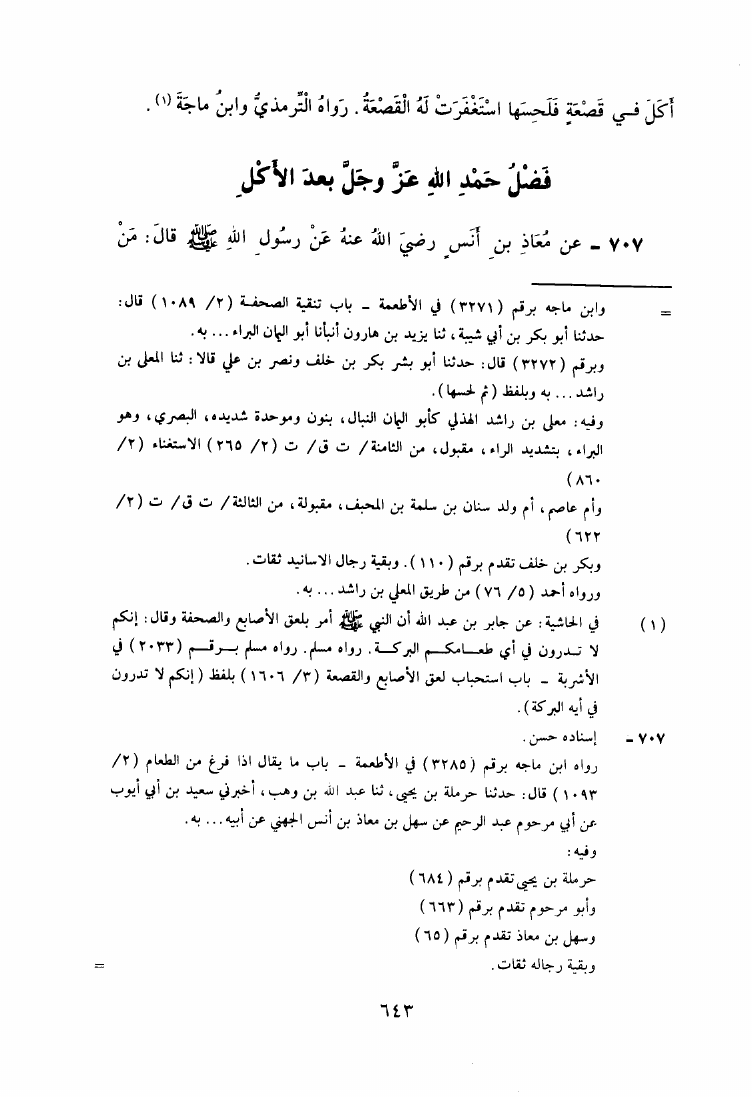 أَكَلَ فـي قَصْعَةٍ فَلَحِسَها اسْتَغْفَرَتْ لَهُ الْقَصْعَةُ. رَواهُ الْتِّرمذيُّ وابنُ ماجَةَ (١).
فَضْلُ حَمْدِ اللهِ عَزَّ وجَلَّ بعدَ الأَكْلِ
٧٠٧ ـ عن مُعَاذِ بنِ أَنَسٍ رضيَ اللهُ عنهُ عَنْ رسُولِ اللهِ ﷺ قالَ: مَنْ
= وابن ماجه برقم (٣٢٧١) في الأطعمة ـ باب تنقية الصحفة (٢/ ١٠٨٩) قال:
حدثنا أبو بكر بن أبي شيبة، ثنا يزيد بن هارون أنبأنا أبو اليمان البراء... به.
وبرقم (٣٢٧٢) قال: حدثنا أبو بشر بكر بن خلف ونصر بن علي قالا: ثنا المعلى بن
راشد... به وبلفظ (ثم لحسها).
وفيه: معلى بن راشد الهذلي كأبو اليمان النبال، بنون وموحدة شديده، البصري، وهو
البراء، بتشديد الراء، مقبول، من الثامنة/ ت ق/ ت (٢/ ٢٦٥) الاستغناء (٢/
٨٦٠)
وأم عاصم، أم ولد سنان بن سلمة بن المحبف، مقبولة، من الثالثة/ ت ق/ ت (٢/
٦٢٢)
وبكر بن خلف تقدم برقم (١١٠). وبقية رجال الاسانيد ثقات.
ورواه أحمد (٥/ ٧٦) من طريق المعلي بن راشد... به.
(١) في الحاشية: عن جابر بن عبد الله أن النبي ﷺ أمر بلعق الأصابع والصحفة وقال: إنكم
لا تـدرون في أي طعـامكـم البركـة. رواه مسلم. رواه مسلم بـرقـم (٢٠٣٣) في
الأشربة ـ باب استحباب لعق الأصابع والقصعة (٣/ ١٦٠٦) بلفظ (إنكم لا تدرون
في أيه البركة).
٧٠٧ ـ إسناده حسن.
رواه ابن ماجه برقم (٣٢٨٥) في الأطعمة ـ باب ما يقال اذا فرغ من الطعام (٢/
١٠٩٣) قال: حدثنا حرملة بن يحيى، ثنا عبد الله بن وهب، أخبرني سعيد بن أبي أيوب
عن أبي مرحوم عبد الرحيم عن سهل بن معاذ بن أنس الجهني عن أبيه... به.
وفيه:
حرملة بن يحيى تقدم برقم (٦٨٤)
وأبو مرحوم تقدم برقم (٦٦٣)
وسهل بن معاذ تقدم برقم (٦٥)
وبقية رجاله ثقات. =
٦٤٣